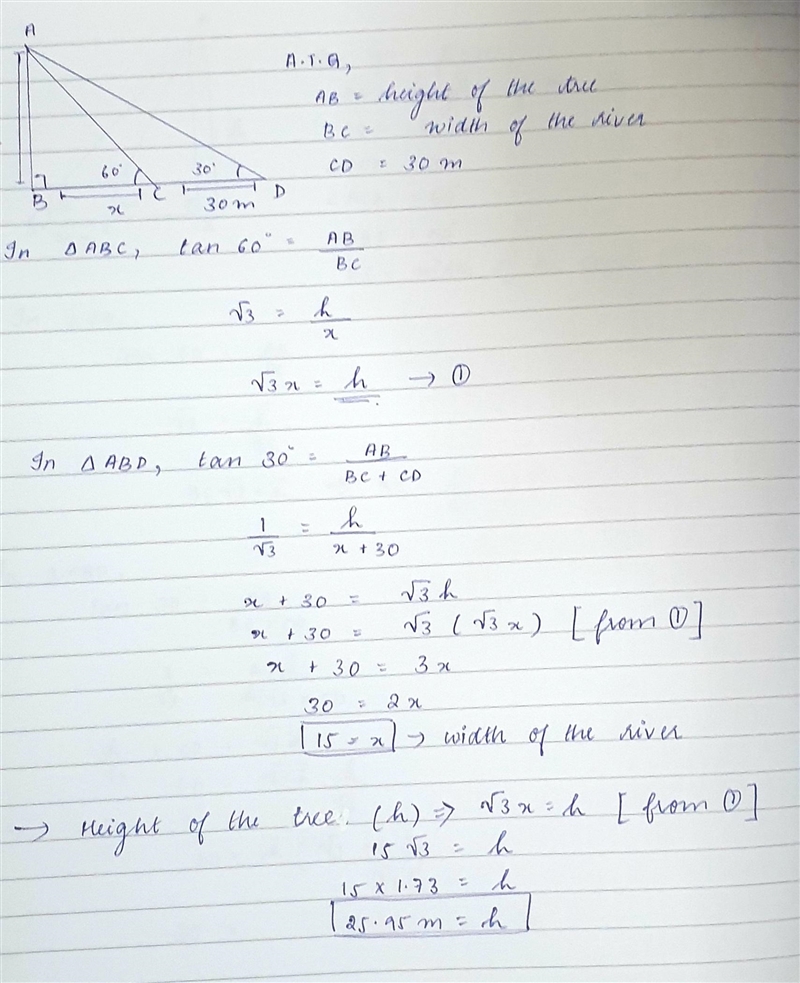 A
A.T.Q,
AB = height of the tree
BC = width of the river
CD = 30 m
60° 30°
B x C 30 m D
In △ABC, tan 60° = AB/BC
√3 = h/x
√3x = h → ①
In △ABD, tan 30° = AB/BC + CD
1/√3 = h/x + 30
x + 30 = √3 h
x + 30 = √3 (√3 x) [from ①]
x + 30 = 3x
30 = 2x
15 = x → width of the river
→ Height of the tree (h) ⇒ √3x = h [from ①]
15 √3 = h
15 x 1.73 = h
25.95 m = h